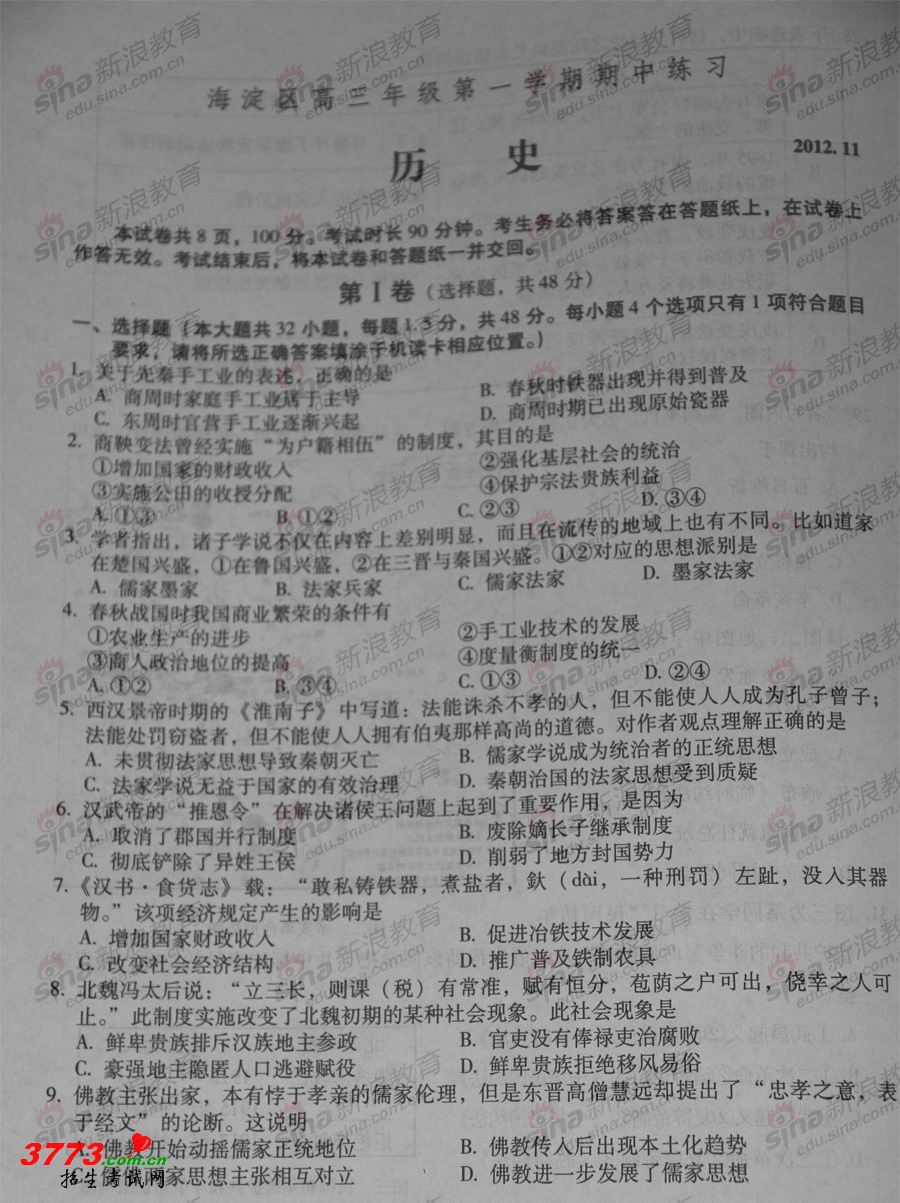 海淀区高三年级第一学期期中练习
历 史
2012.11
本试卷共8页，100分。考试时长90分钟。考生务必将答案答在答题纸上，在试卷上
作答无效。考试结束后，将本试卷和答题纸一并交回。
第Ⅰ卷（选择题，共48分）
一、选择题（本大题共32小题，每题1.5分，共48分。每小题4个选项只有1项符合题目
要求，请将所选正确答案填涂于机读卡相应位置。）
1. 关于先秦手工业的表述，正确的是
A. 商周时家庭手工业居于主导 B. 春秋时铁器出现并得到普及
C. 东周时官营手工业逐渐兴起 D. 商周时期已出现原始瓷器
2. 商鞅变法曾经实施“为户籍相伍”的制度，其目的是
①增加国家的财政收入 ②强化基层社会的统治
③实施公田的收授分配 ④保护宗法贵族利益
A. ①③ B. ①② C. ②③ D. ③④
3. 学者指出，诸子学说不仅在内容上差别明显，而且在流传的地域上也有不同。比如道家
在楚国兴盛，①在鲁国兴盛，②在三晋与秦国兴盛。①②对应的思想派别是
A. 儒家墨家 B. 法家兵家 C. 儒家法家 D. 墨家法家
4. 春秋战国时我国商业繁荣的条件有
①农业生产的进步 ②手工业技术的发展
③商人政治地位的提高 ④度量衡制度的统一
A. ①② B. ③④ C. ①③ D. ②④
5. 西汉景帝时期的《淮南子》中写道：法能诛杀不孝的人，但不能使人人成为孔子曾子；
法能处罚窃盗者，但不能使人人拥有伯夷那样高尚的道德。对作者观点理解正确的是
A. 未贯彻法家思想导致秦朝灭亡 B. 儒家学说成为统治者的正统思想
C. 法家学说无益于国家的有效治理 D. 秦朝治国的法家思想受到质疑
6. 汉武帝的“推恩令”在解决诸侯王问题上起到了重要作用，是因为
A. 取消了郡国并行制度 B. 废除嫡长子继承制度
C. 彻底铲除了异姓王侯 D. 削弱了地方封国势力
7.《汉书·食货志》载：“敢私铸铁器，煮盐者，釱（dài，一种刑罚）左趾，没入其器
物。”该项经济规定产生的影响是
A. 增加国家财政收入 B. 促进冶铁技术发展
C. 改变社会经济结构 D. 推广普及铁制农具
8. 北魏冯太后说：“立三长，则课（税）有常准，赋有恒分，苞荫之户可出，侥幸之人可
止。”此制度实施改变了北魏初期的某种社会现象。此社会现象是
A. 鲜卑贵族排斥汉族地主参政 B. 官吏没有俸禄吏治腐败
C. 豪强地主隐匿人口逃避赋役 D. 鲜卑贵族拒绝移风易俗
9. 佛教主张出家，本有悖于孝亲的儒家伦理，但是东晋高僧慧远却提出了“忠孝之意，表
于经文”的论断。这说明
佛教开始动摇儒家正统地位 B. 佛教传入后出现本土化趋势
两家思想主张相互对立 D. 佛教进一步发展了儒家思想
3773.com.cn
招生考试网
sina新浪教育
edu.sina.com.cn